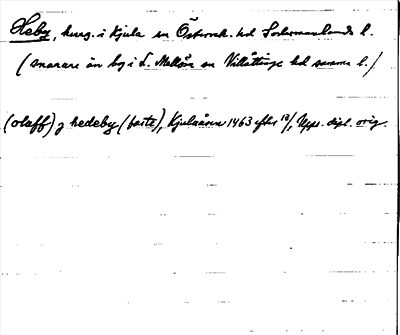 Heby, herrg. i Kjula sn Österrek. hd Södermanlands l.
(snarare än by i L. Mellösa sn Villåttinge hd samma l.)
(olaff) j hedeby (faste), Kjulaåsen 1463 efter 12/1, Upps. dipl. orig.